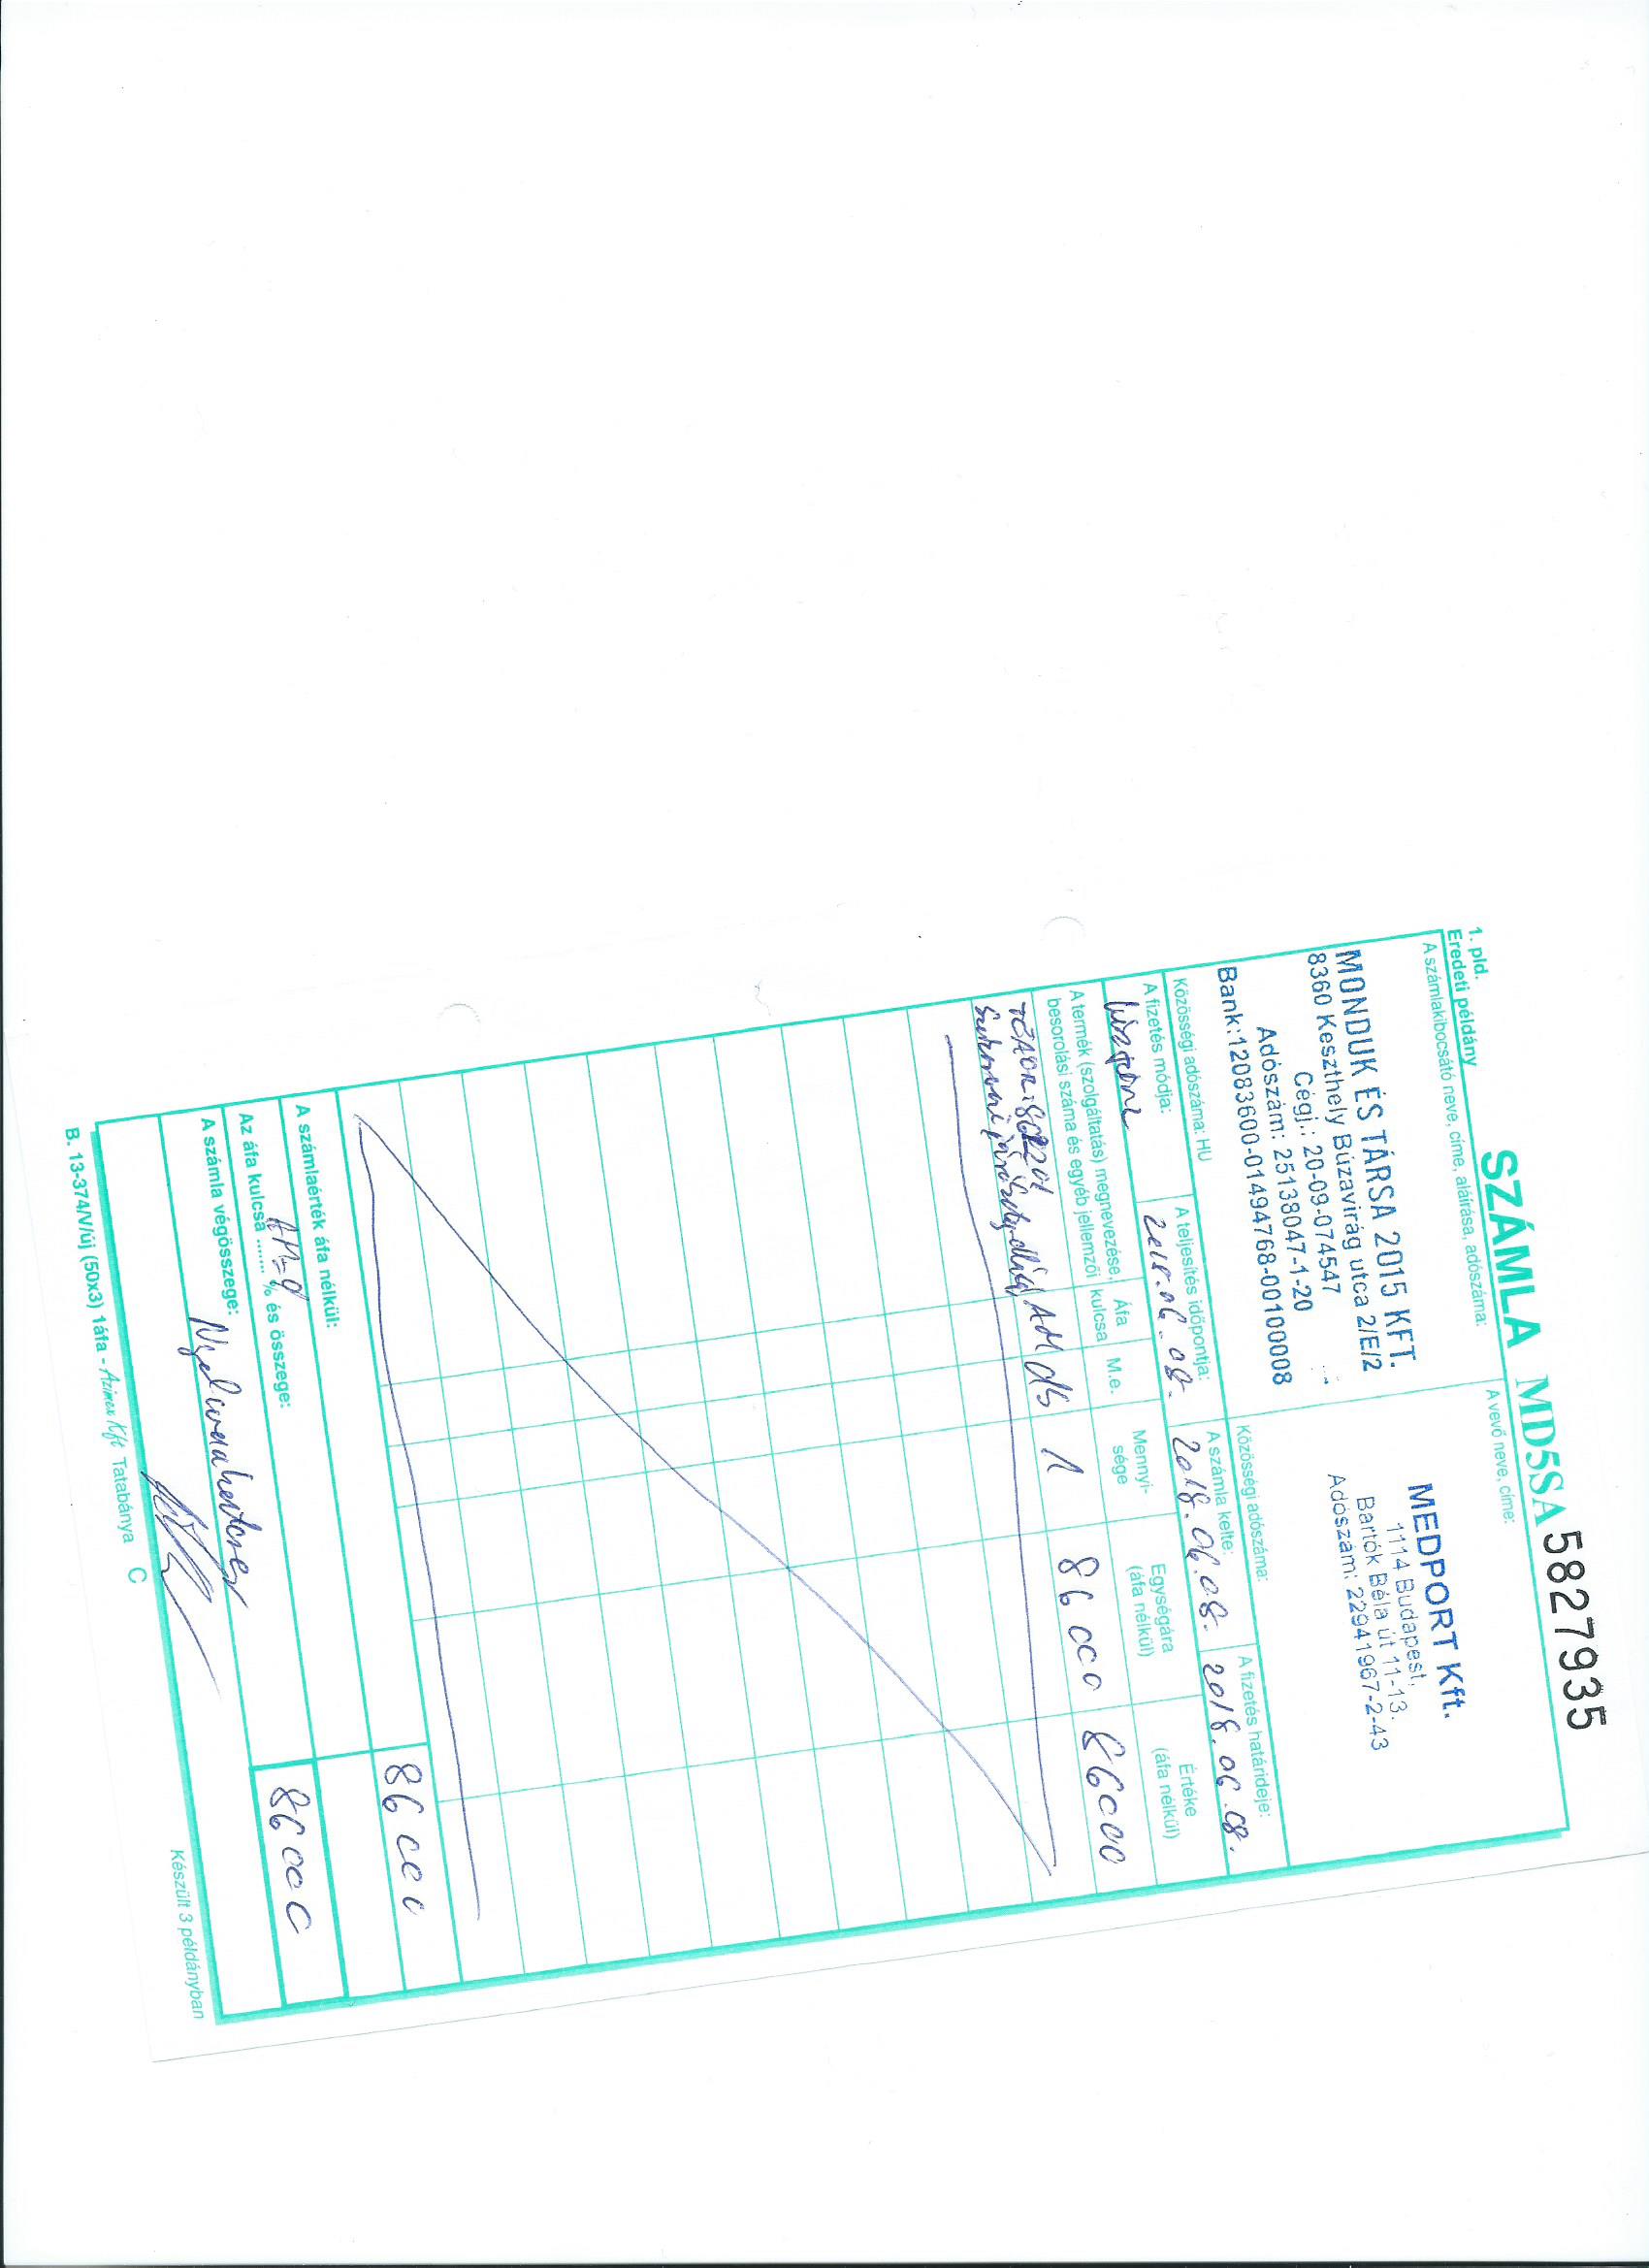 1. pld.
Eredeti példány
SZÁMLA MD5SA 5827935
A számlakibocsátó neve, címe, aláírása, adószáma:
MONDUK ÉS TÁRSA 2015 KFT.
8360 Keszthely Búzavirág utca 2/E/2
Cégj.: 20-09-074547
Adószám: 25138047-1-20
Bank:12083600-01494768-00100008
A vevő neve, címe:
MEDPORT Kft.
1114 Budapest,
Bartók Béla út 11-13.
Adószám: 22941967-2-43
Közösségi adószáma: HU
Közösségi adószáma:
A fizetés módja:
A teljesítés időpontja:
2018.06.08.
A számla kelte:
2018.06.08.
A fizetés határideje:
2018.06.08.
A termék (szolgáltatás) megnevezése, besorolási száma és egyéb jellemzői
Áfa kulcsa
M.e.
Mennyi-
sége
Egységára
(áfa nélkül)
Értéke
(áfa nélkül)
AM db 1 86 000 86000
A számlaérték áfa nélkül:
86 000
Az áfa kulcsa ....... % és összege:
A számla végösszege:
86 000
B. 13-374/V/új (50x3) 1áfa - Azimex Kft Tatabánya C
Készült 3 példányban